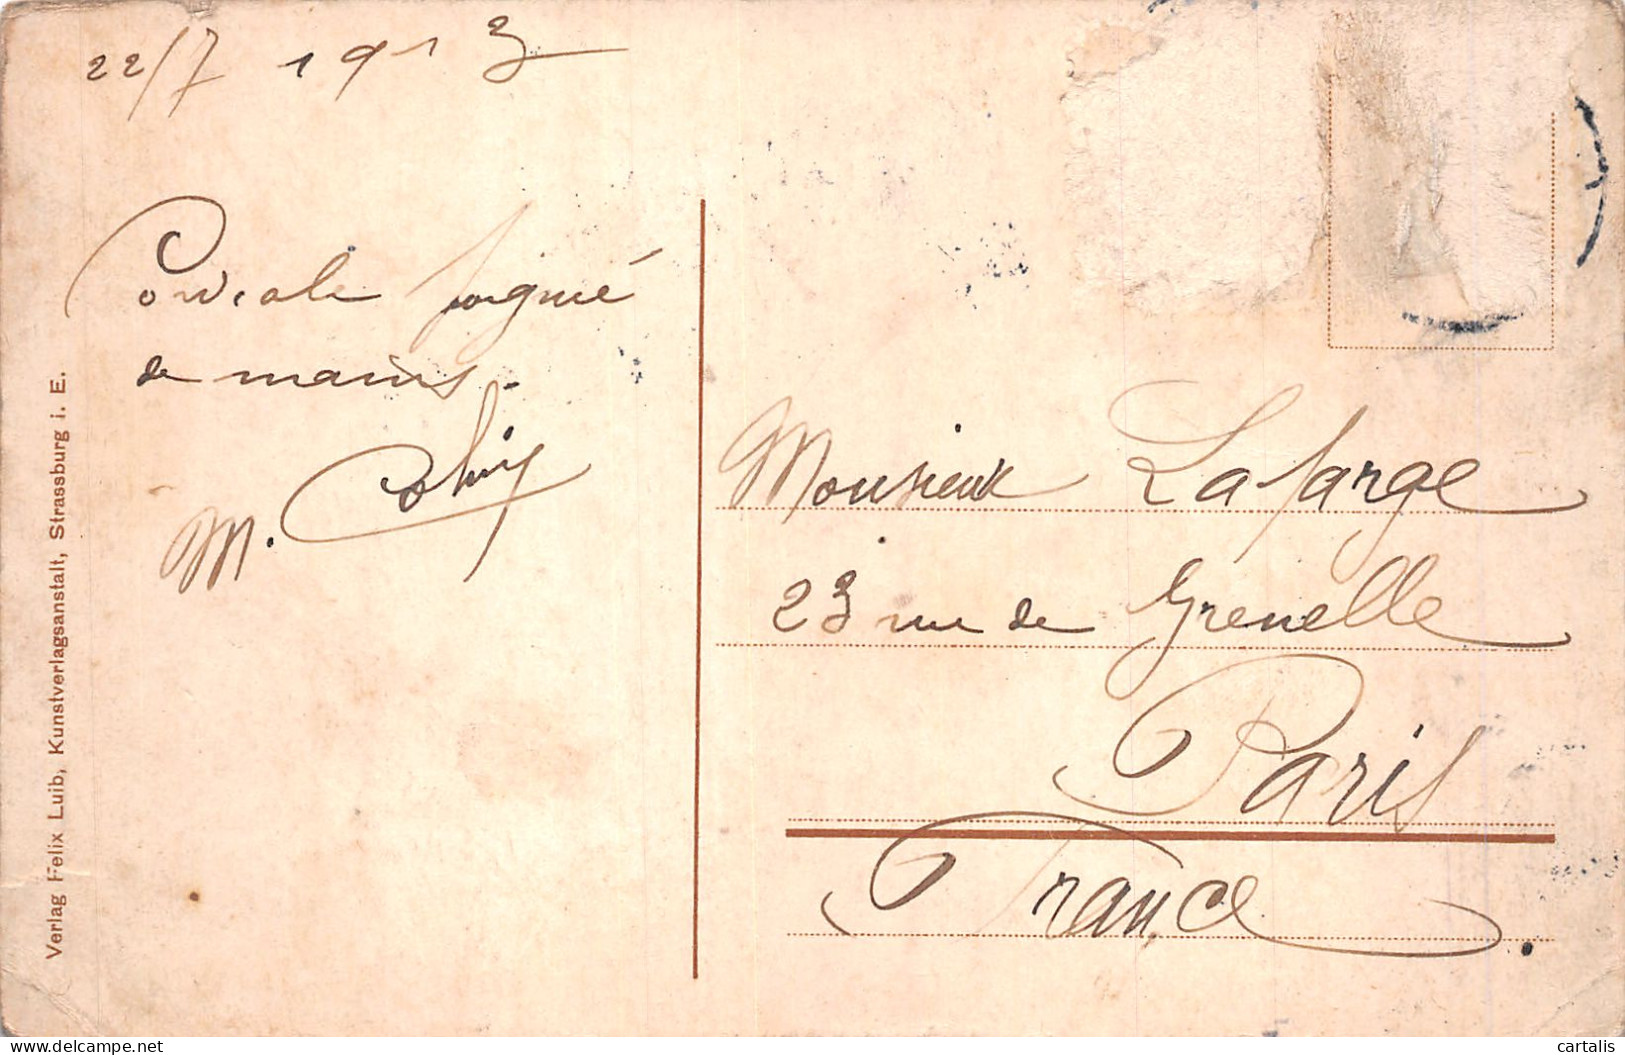 22/7 1913
Cordiale poignée
de mains.
M.
Monsieur Lafarge
23 rue de Grenelle
Paris
France.
Verlag Felix Luib, Kunstverlagsanstalt, Strassburg i. E.
cartalis